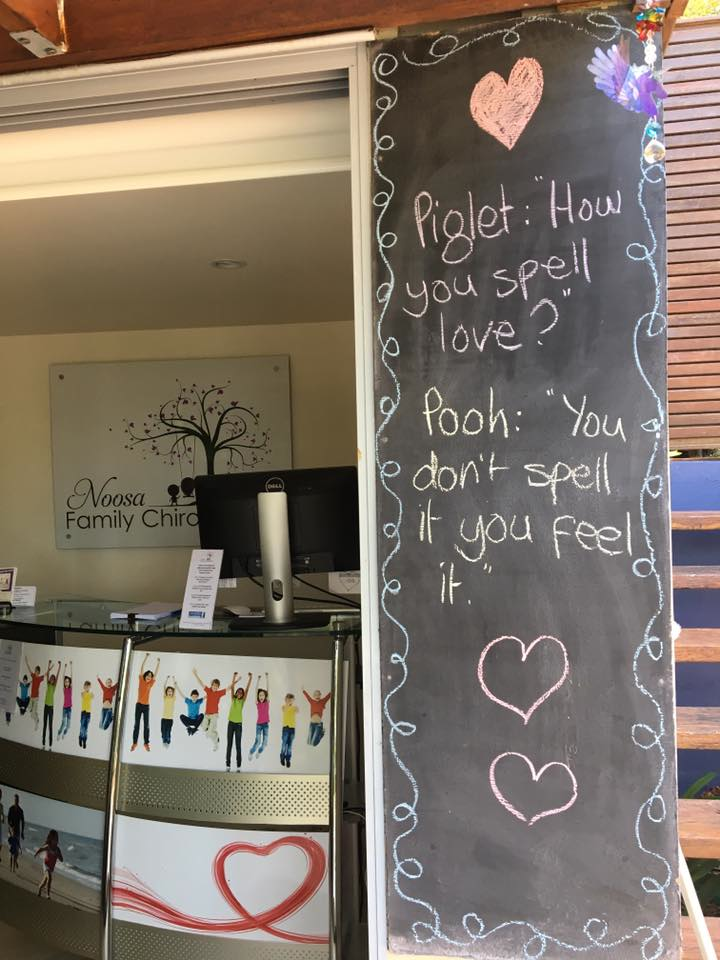 Piglet: "How
you spell
love?"
Pooh: "You
don't spell
it you feel
it."
Noosa
Family Chiro
DELL